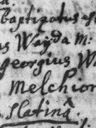 Baptizatus est
us Wayda M:
Georgius W
Melchior
Slatina.